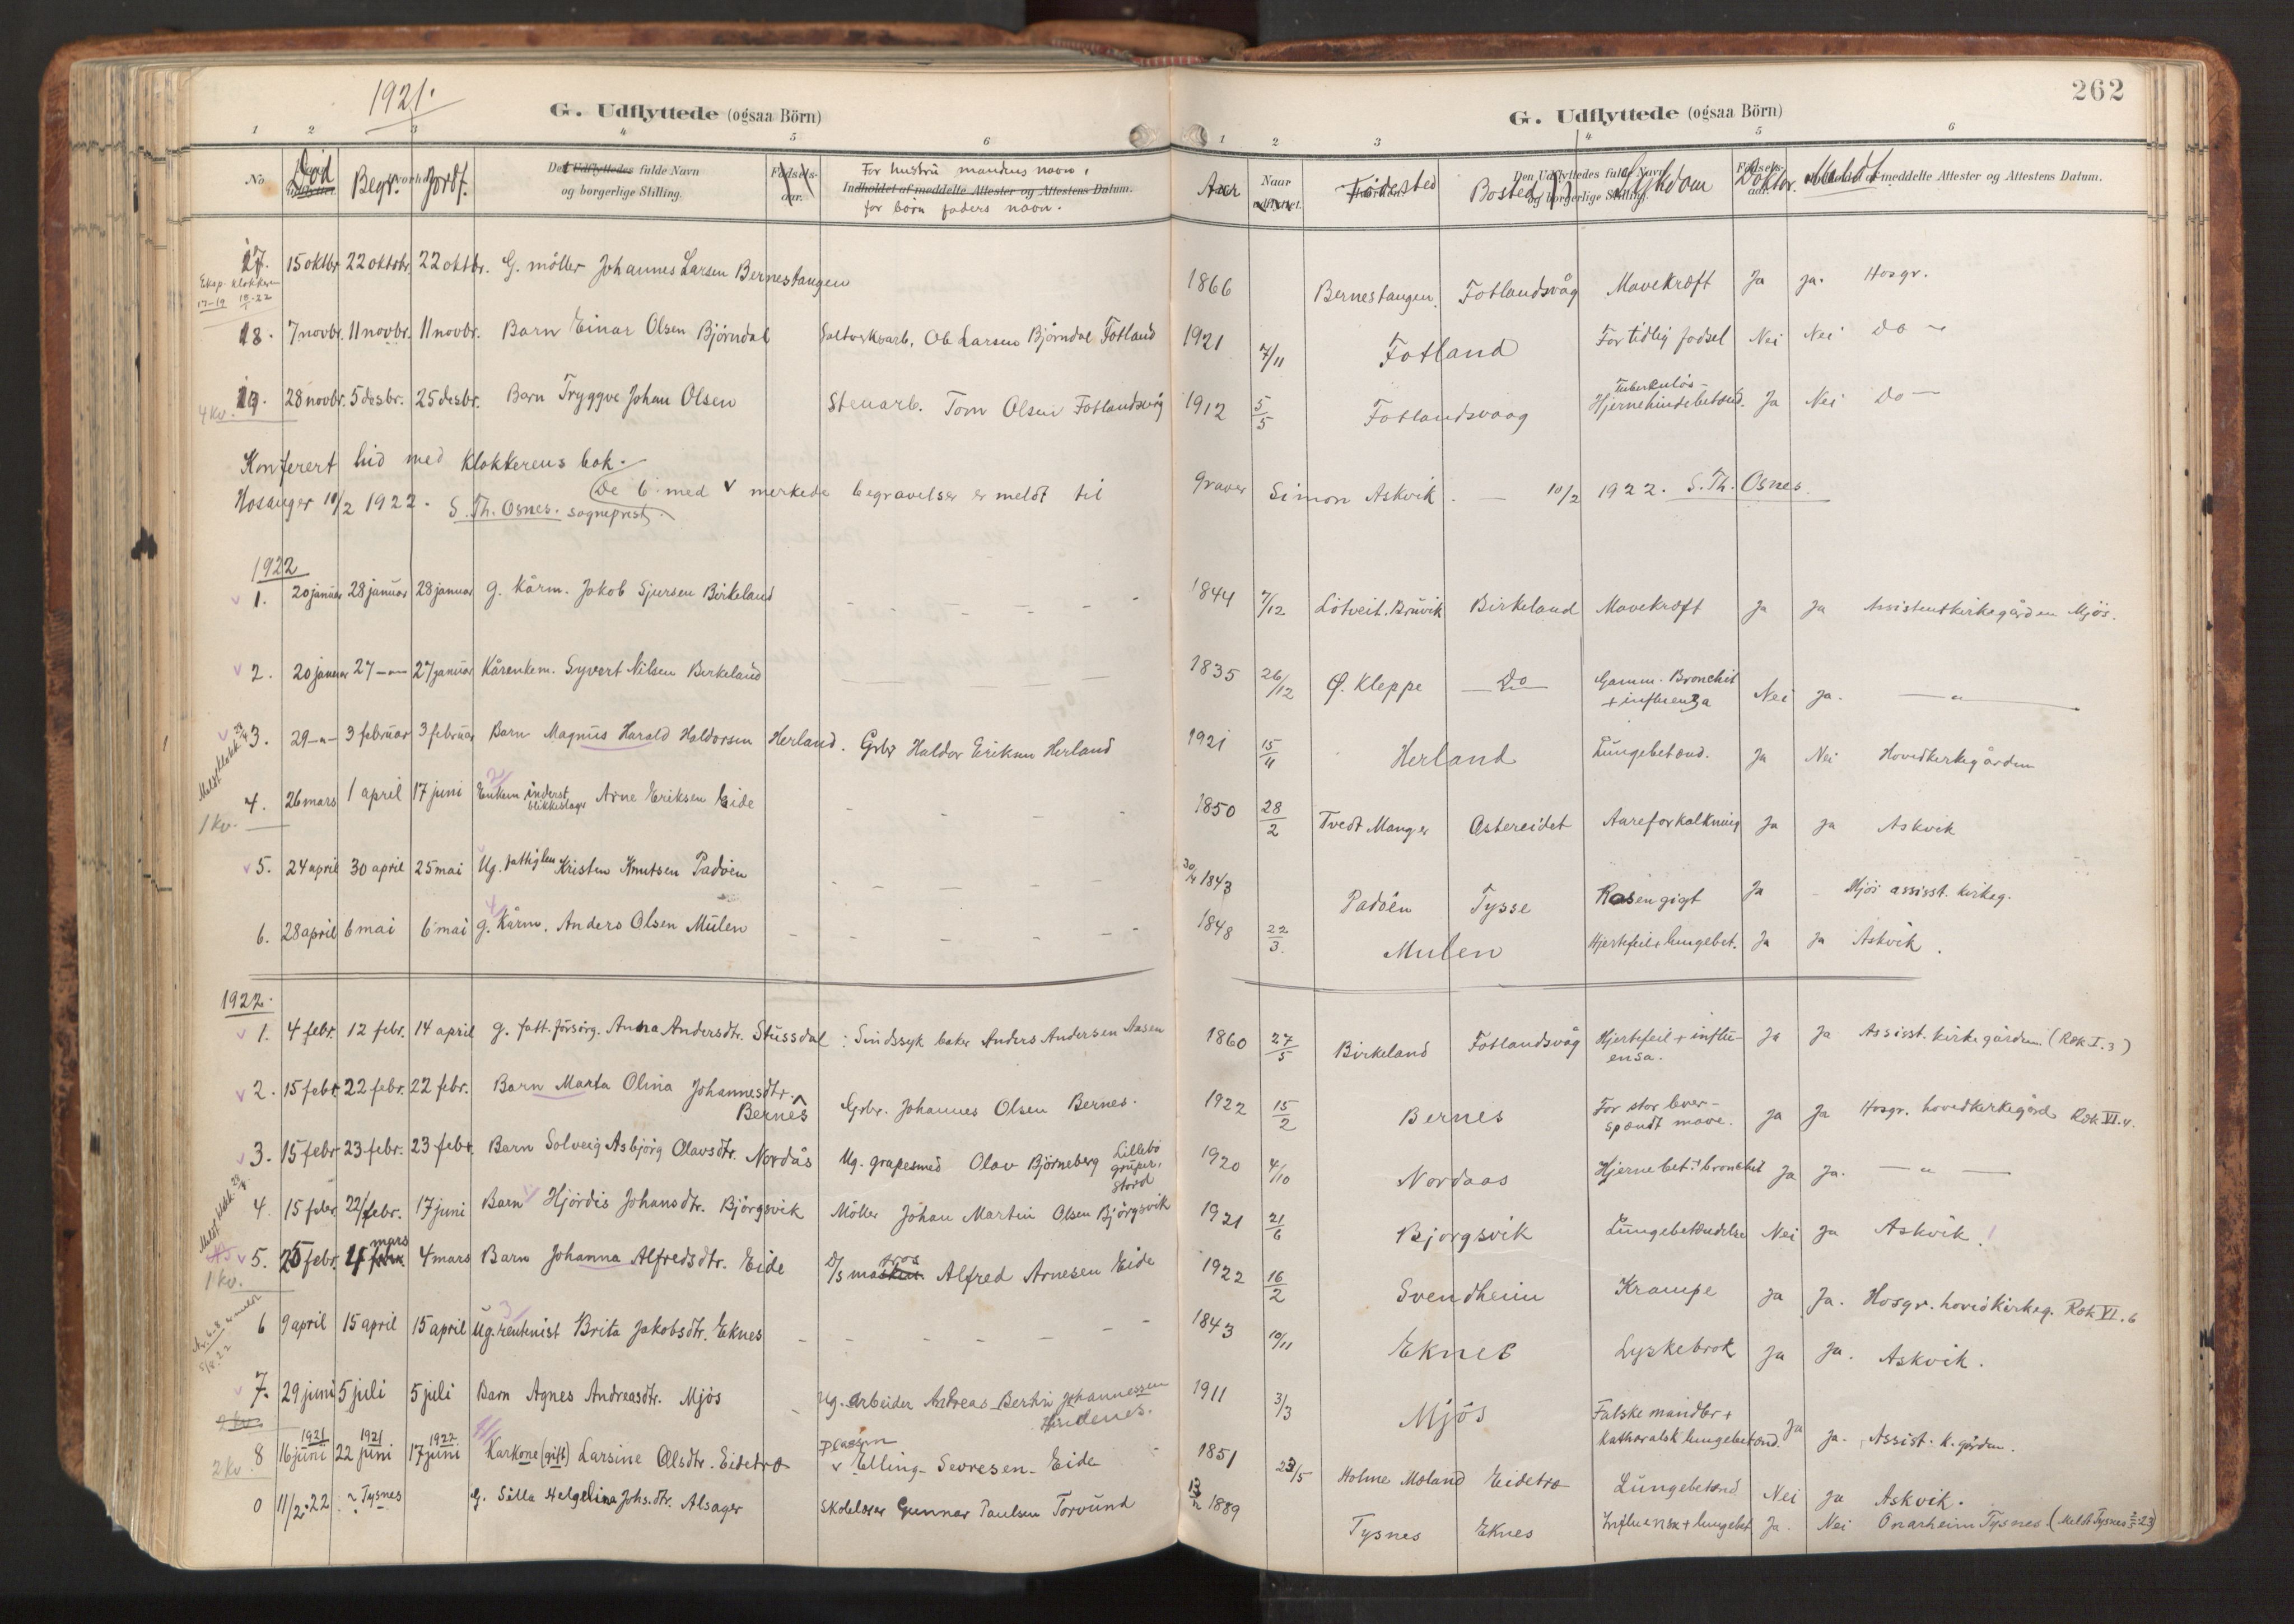 262
1921.
G. Udflyttede (ogsaa Börn)
G. Udflyttede (ogsaa Börn)
1 2 3 4 5 6
1 2 3 4 5 6
No Död Begr. Jordf. Det Udflyttedes fulde Navn og borgerlige Stilling. Födsels-aar. For hustru mandens navn, Indholdet af meddelte Attester og Attestens Datum. for börn faders navn.
Aar Naar udflyttet. Födested Bosted Den Udflyttedes fulde Navn og borgerlige Stilling. Sykdom Födsels-aar. Doktor. Meldt. Indholdet af meddelte Attester og Attestens Datum.
17. 15 oktbr. 22 oktobr. 22 oktbr. G. möller Johannes Larsen Bernestangen 1866 Bernestangen Fotlandsvåg Mavekræft Ja ja. Hosgr.
Eksp. klokkeren 17-19
18. 7 novbr. 11 novbr. 11 novbr. Barn Einar Olsen Björndal Saltverksarb. Ole Larsen Björndal Fotland 1921 7/11 Fotland For tidlig födsel Nei Nei Do
4 kv. 19. 28 novbr. 5 desbr. 25 desbr. Barn Tryggve Johan Olsen Stenarb. Tom Olsen Fotlandsvåg 1912 5/5 Fotlandsvaag Tuberkulös Hjernehindebetænd. Ja Nei Do
Konferert hid med klokkerens bok.
Hosanger 10/2 1922. S. Th. Osnes. sogneprest.
De 6 med v merkede begravelser er meldt til graver Simon Askvik. 10/2 1922. S. Th. Osnes.
1922
v 1. 20 januar 28 januar 28 januar G. kårm. Jakob Sjursen Birkeland 1844 7/12 Lötveit. Bruvik Birkeland Mavekræft Ja Ja Assistentkirkegården Mjös.
v 2. 20 januar 27 -"- 27 januar Kårenkem. Syvert Nilsen Birkeland 1835 26/12 Ø. Kleppe Do Gamm. Bronchit + influenza Nei ja. "
v 3. 29 -"- 3 februar 3 februar Barn Magnus Harald Haldorsen Herland. Grbr Haldor Eriksen Herland 1921 15/11 Herland Lungebetænd. Ja Nei Hovedkirkegården
Meldt klokk.
4. 26 mars 1 april 17 juni Enkem. inderst blikkeslager Arne Eriksen Eide 1850 28/2 Tvedt Manger Ostereidet Aareforkalkning Ja ja Askvik
1 kv.
v 5. 24 april 30 april 25 mai Ug. fattiglem Kristen Knutsen Padöen 30/4 1843 Padöen Tysse Rosengigt Ja Mjös assisst. kirkeg.
6. 28 april 6 mai 6 mai G. Kårm. Anders Olsen Mulen 1848 22/3. Mulen Hjertefeil + lungebet. Ja Ja Askvik.
1922.
v 1. 4 febr. 12 febr. 14 april G. fatt. forsörg. Anna Andersdtr. Stussdal : Sindssyk baker Anders Andersen Aasen 1860 27/5 Birkeland Fotlandsvåg Hjertefeil + influensa. Ja Ja Assisst. kirkegården. (Rek I. 3)
v 2. 15 febr. 22 febr. 22 febr. Barn Marta Olina Johannesdtr. Bernes Grbr. Johannes Olsen Bernes. 1922 15/2 Bernes For stor lever - spændt mave. Ja Ja Hosgr. hovedkirkegård Rek VI. 4.
v 3. 15 febr 23 febr. 23 febr. Barn Solveig Asbjörg Olavsdtr. Nordås Ug. grapesmed Olav Björneberg Lillebö gruber, Stord 1920 4/10 Nordaas Hjernebet. + bronchit Ja Ja. "
4. 15 febr 22 febr. 17 juni Barn Hjördis Johansdtr. Björgsvik Möller Johan Martin Olsen Björgsvik 1921 21/6 Björgsvik Lungebetændelse Nei Ja Askvik.
Meldt klokk.
v 5. 25 febr. 4 mars 4 mars Barn Johanna Alfredsdtr. Eide D/s matros Alfred Arnesen Eide 1922 16/2 Svendheim Krampe Ja Ja. Hosgr. hovedkirkeg. Rek VI. 6
1 kv.
6 9 april 15 april 15 april Ug. rentenist Brita Jakobsdtr. Eknes 1843 10/11 Eknes Lyskebrok Ja Ja. Askvik.
v 7. 29 juni 5 juli 5 juli Barn Agnes Andreasdtr. Mjös Ug. Arbeider Andreas Bertin Johannessen Hindenes. 1911 3/3 Mjös Falske mandler + kathoralsk lungebetænd. Ja Ja. Assist. k.gården.
2 kv.
8 16 juni 1921 22 juni 1921 17 juni 1922 Karkone (gift) Larsine Olsdtr. Eidetræ Elling Sevresen Eide 1851 23/5 Holme Moland Eidetræ Lungebetænd Nei Ja Askvik.
2 kv.
0 11/2.22 ? Tysnes G. Silla Helgelina Johs.dtr. Alsager Skolelærer Gunnar Paulsen Torvund 1889 Tysnes Eknes Influensa + lungebet. Ja. Nei Onarheim Tysnes. (Meldt Tysnes 23)